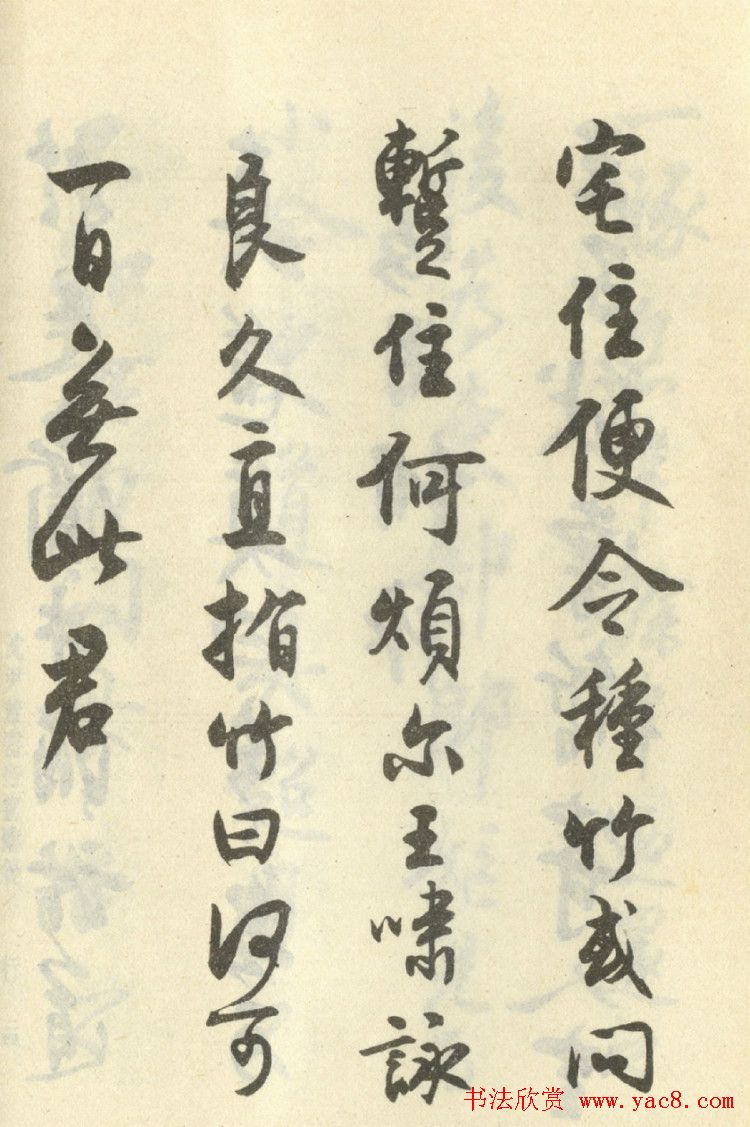 宅住便令種竹或问
暫住何煩尔王嘯詠
良久直指竹曰何可
一日無此君
书法欣赏 www.yac8.com